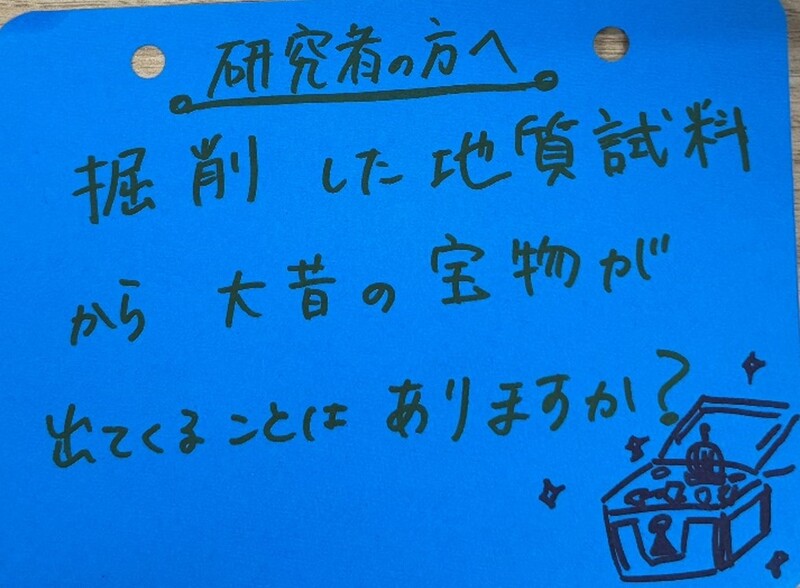 研究者の方へ
掘削した地質試料
から大昔の宝物が
出てくることはありますか?